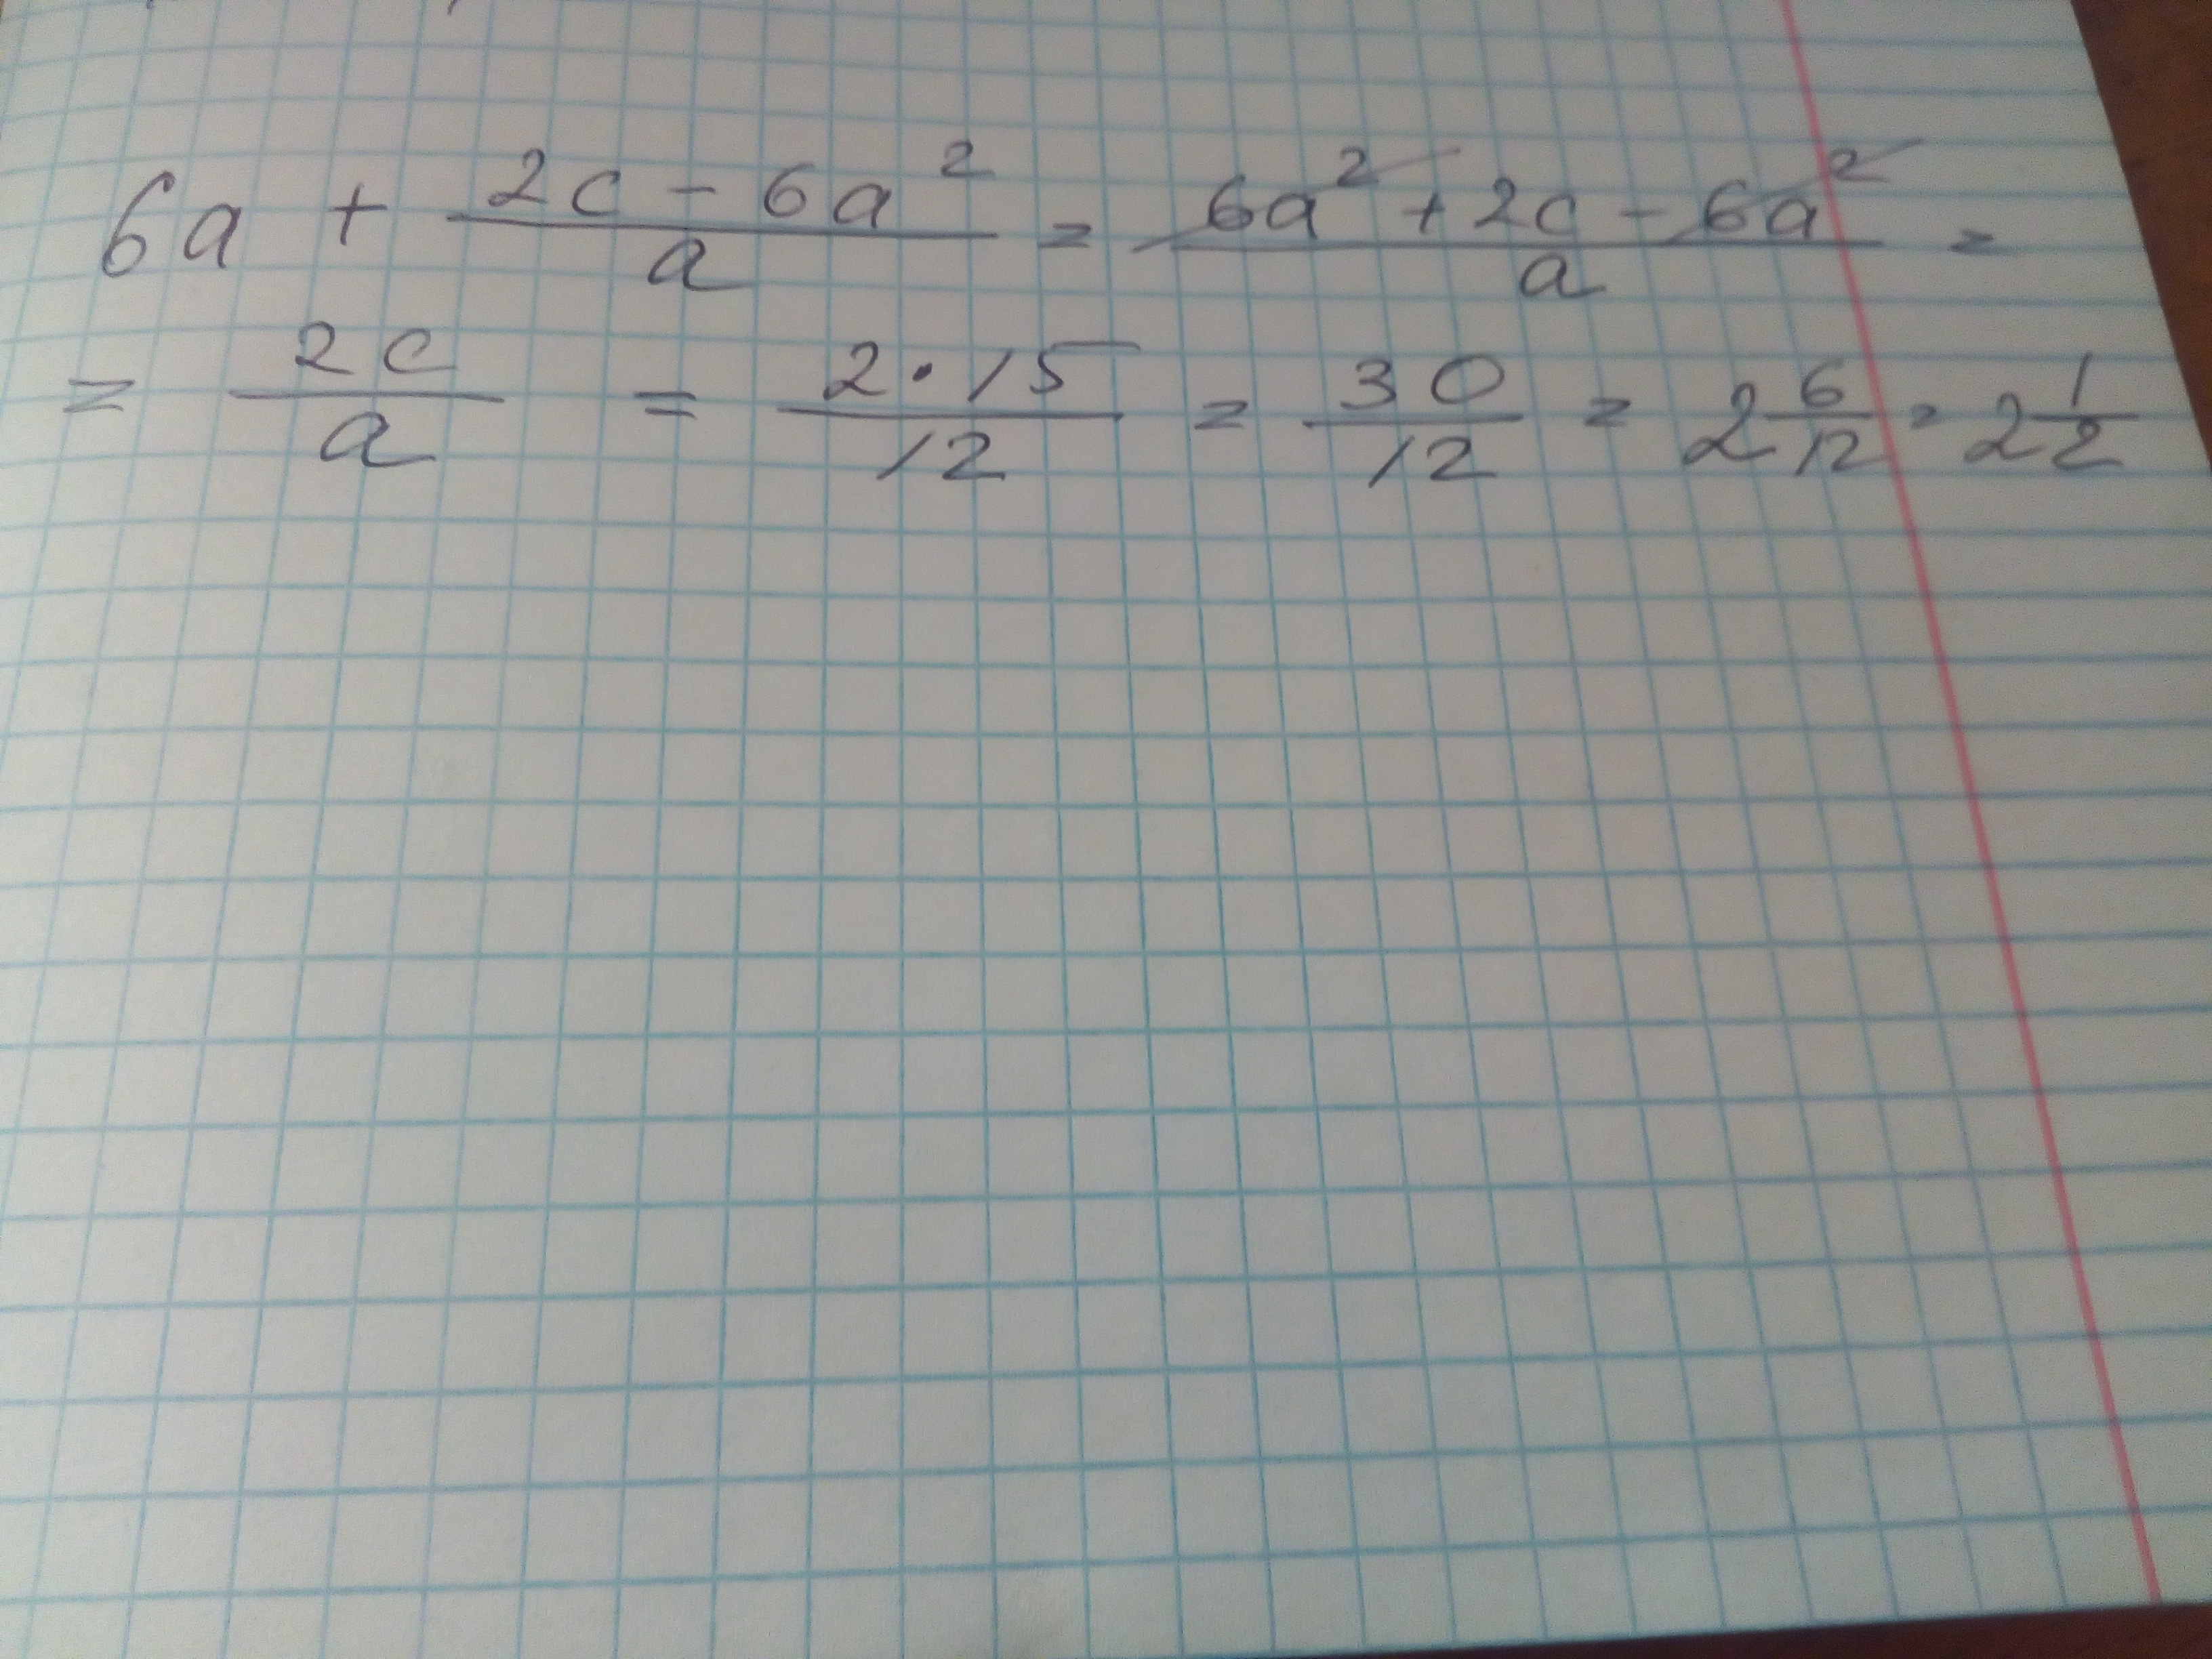 6a + \frac{2c - 6a^2}{a} = \frac{6a^2 + 2c - 6a^2}{a} =
= \frac{2c}{a} = \frac{2 \cdot 15}{12} = \frac{30}{12} = 2\frac{6}{12} = 2\frac{1}{2}